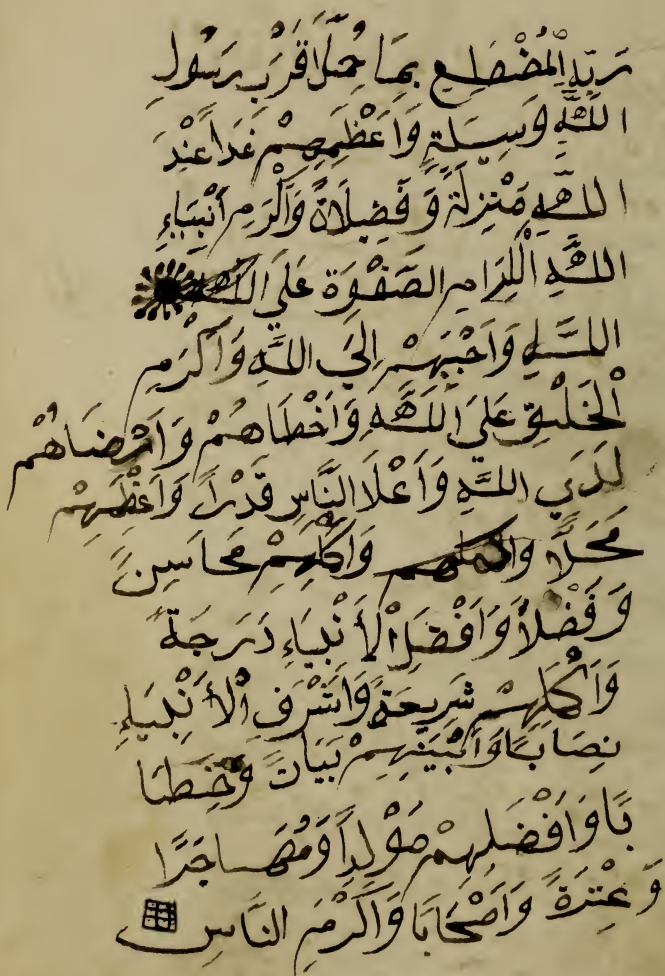 رَبِّهِ الْمُضْطَلِعِ بِمَا حُمِّلَ اَقْرَبِ رَسُولِ
اللَّهِ وَسِيلَةٍ وَاَعْظَمِهِمْ غَدَاً عِنْدَ
اللَّهِ مَنْزِلَةً وَفَضِيلَاةً وَاَكْرَمِ اَنْبِيَاءِ
اللَّهِ الْكِرَامِ الصَّفْوَةِ عَلَي اللَّهِ
اللَّهِ وَاَحَبِّهِمْ اِلَي اللَّهِ وَاَكْرَمِ
الْخَلْقِ عَلَي اللَّهِ وَاَخْطَاهُمْ وَاَرْضَاهُمْ
لَدَي اللَّهِ وَاَعْلَا النَّاسِ قَدْرَاً وَاَعْظَمِهِمْ
مَحَلَّاً وَاَكْمَلِهِمْ مَحَاسِنَ
وَفَضْلاً وَاَفْضَلِ الْاَنْبِيَاءِ دَرَجَةً
وَاَكْمَلِهِمْ شَرِيعَةً وَاَشْرَفِ الْاَنْبِيَاءِ
نِصَابَاً وَاَبْيَنِهِمْ بَيَاتَ وَخِطَا
بَا وَاَفْضَلِهِمْ مَوْلِدَاً وَمُهَاجَرًا
وَعِتْرَةً وَاَصْحَابَا وَاَكْرَمِ النَّاسِ